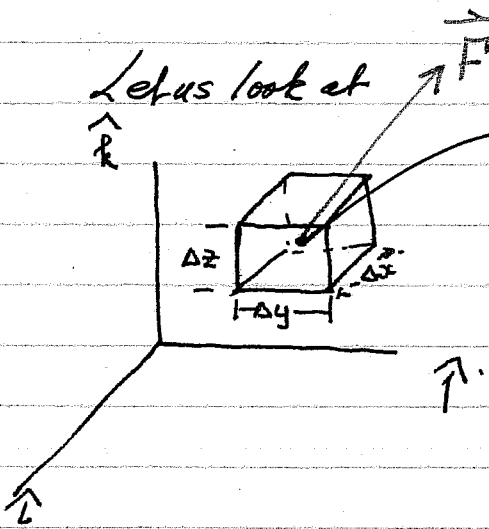 F⃗
Let us look at
k̂
Δz
Δx
Δy
ĵ
î